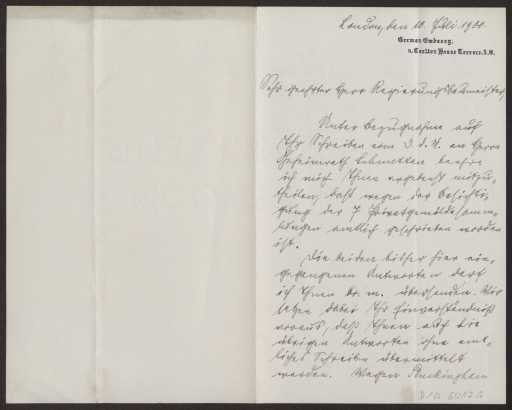 London, den 10. Juli 1901.
German Embassy.
9, Carlton House Terrace, S.W.
Sehr geehrter Herr Regierungsbaumeister,
Unter Bezugnahme auf
Ihr Schreiben vom 3. d. M. an Herrn
Geheimrath beehre
ich mich Ihnen ergebenst mitzu-
theilen, daß wegen der Besichti-
gung der 7 Privatgemäldesamm-
lungen amtlich geschrieben worden
ist.
Die beiden bisher hier ein-
gegangenen Antworten darf
ich Ihnen br. m. übersenden. Wir
setzen dabei Ihr Einverständniß
voraus, daß Ihnen auch die
übrigen Antworten ohne amt-
liches Schreiben übermittelt
werden. Wegen Buckingham